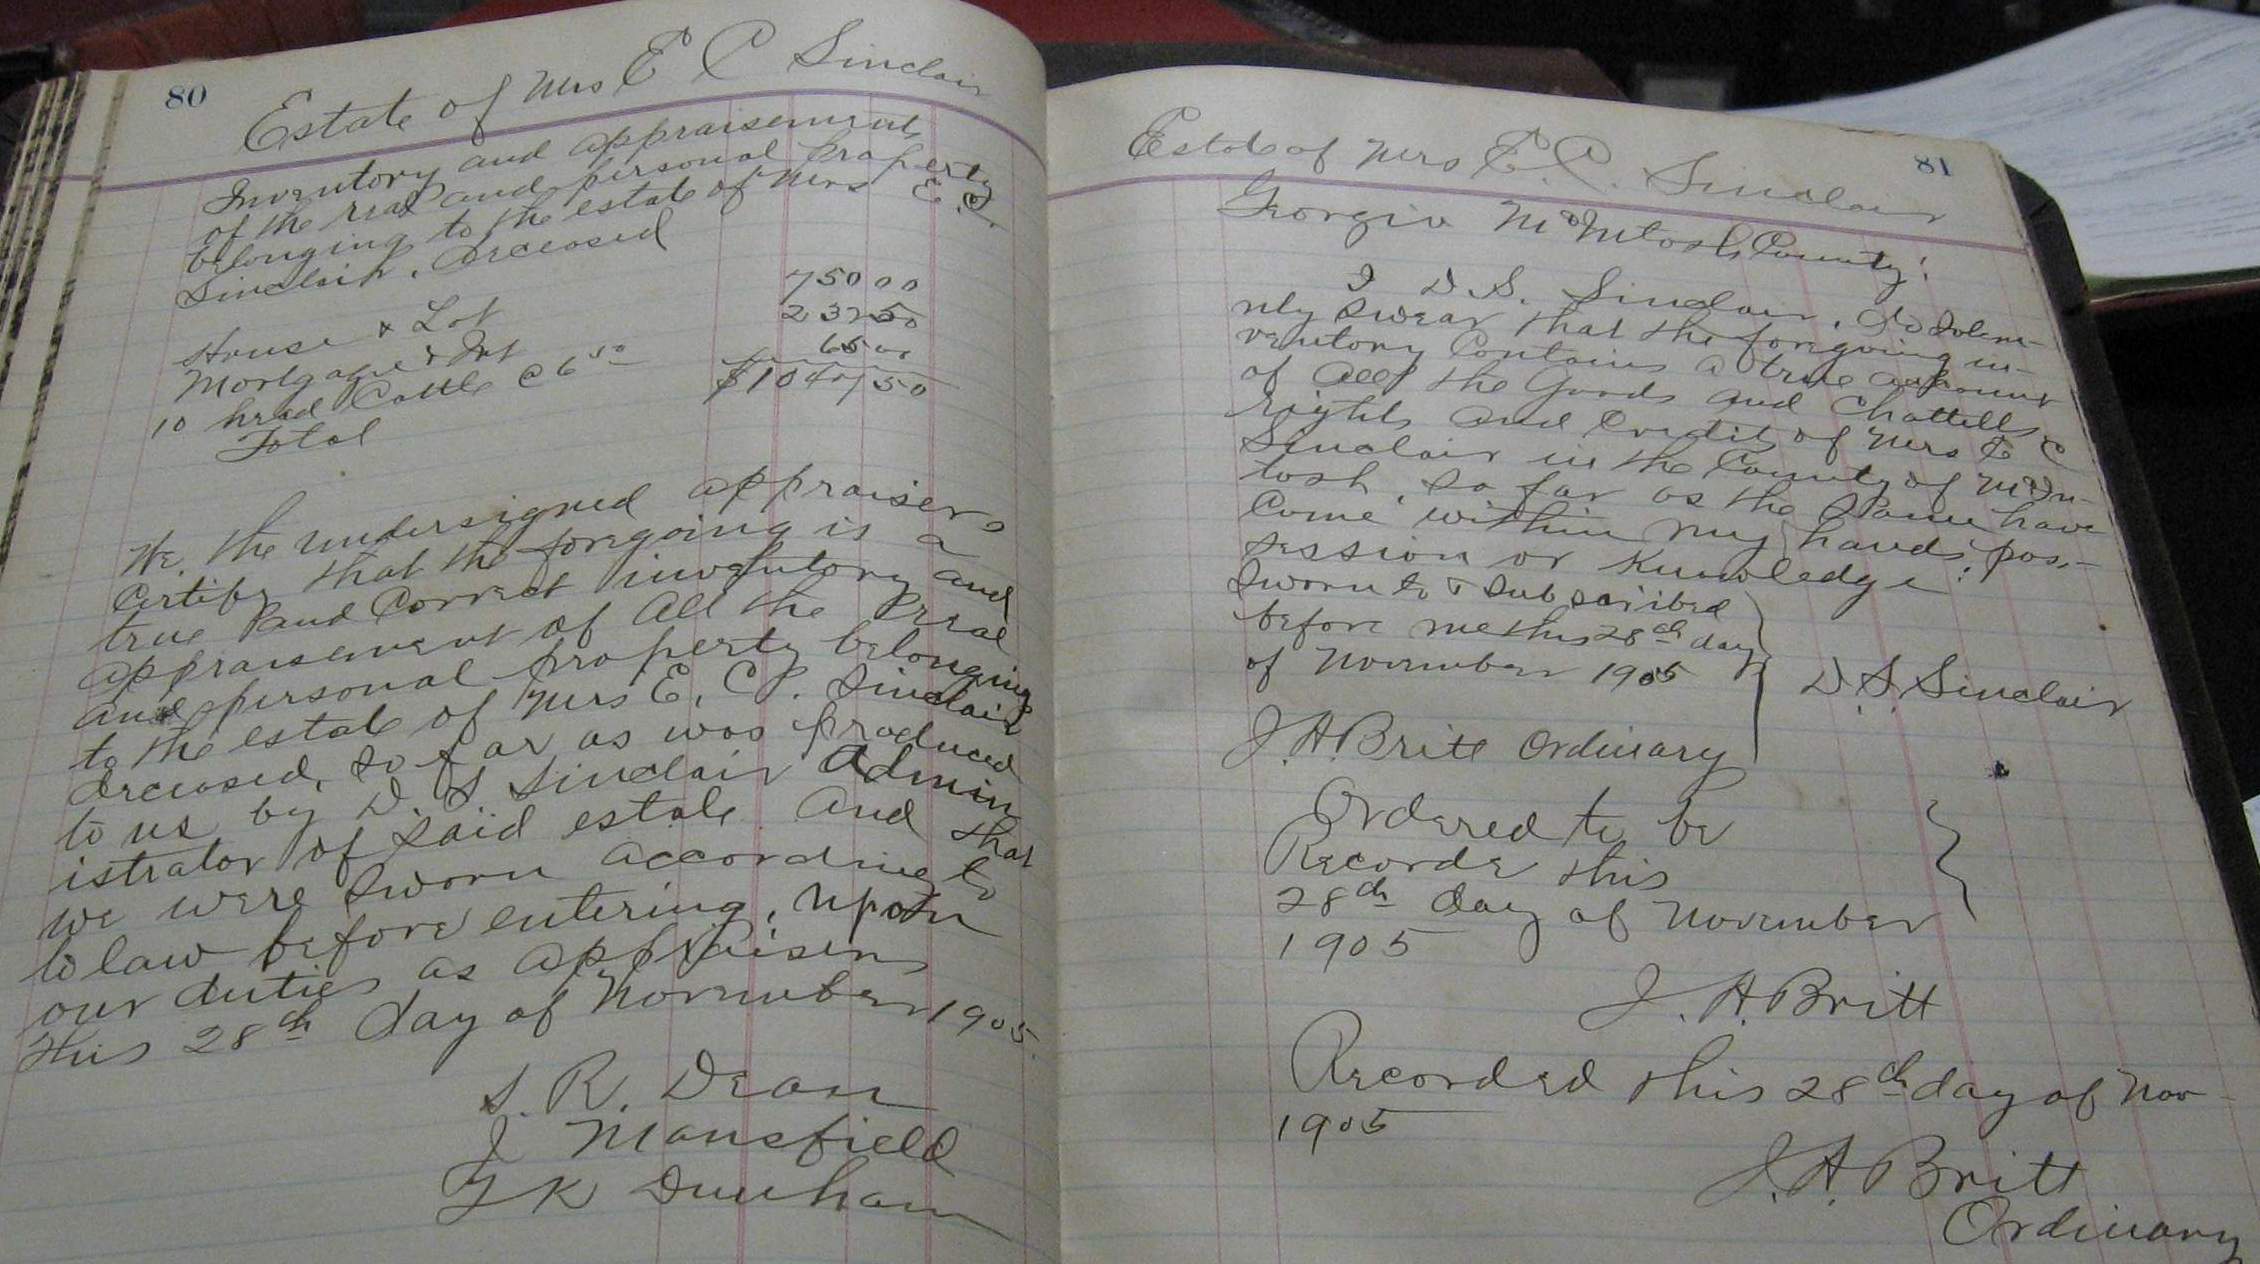 80
Estate of Mrs E C Sinclair
Inventory and appraisement
of the real and personal property
belonging to the estate of Mrs E. C.
Sinclair, deceased
House & Lot 750 00
Mortgage & Int 232 50
10 head Cattle @ 6 50 65 00
Total $1047 50
We, the undersigned appraisers
Certify that the foregoing is a
true and Correct inventory and
appraisement of all the real
and personal property belonging
to the estate of Mrs E. C. Sinclair
deceased, so far as was produced
to us by D. S Sinclair Admin
istrator of said estate and that
we were sworn according to
to law before entering, upon
our duties as appraisers
this 28th day of November 1905.
S. R. Dean
J Mansfield
T K Dunham
81
Estate of Mrs E. C. Sinclair
Georgia McIntosh County:
I D. S. Sinclair, do solem-
nly swear that the foregoing in-
ventory Contains a true account
of all the Goods and Chattells
rights and Credits of Mrs E C
Sinclair in the County of McIn-
tosh, so far as the same have
Come within my hands, pos-
session or Knowledge.
Sworn to & subscribed
before me this 28th day
of November 1905
D. S. Sinclair
J. H. Britt Ordinary
Ordered to be
Recorde this
28th day of November
1905
J. H. Britt
Recorded this 28th day of Nov-
1905
J. H. Britt
Ordinary